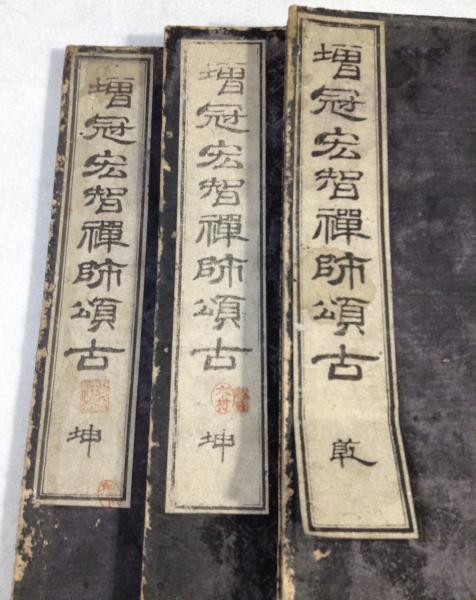 增冠宏智禪師頌古
乾
增冠宏智禪師頌古
坤
增冠宏智禪師頌古
坤